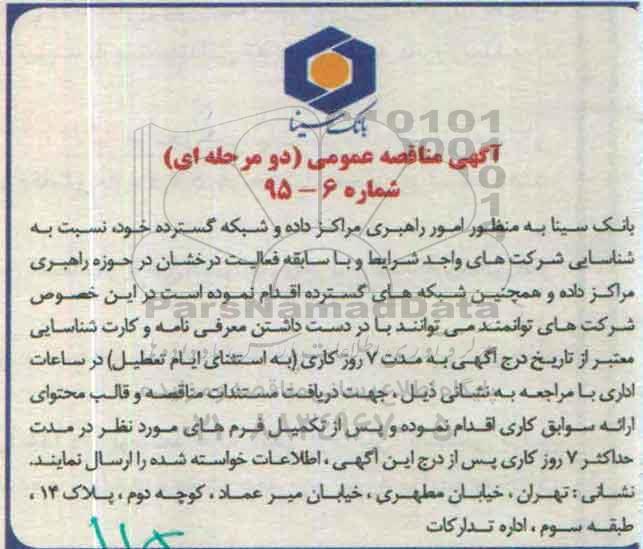 بانک سینا
آگهی مناقصه عمومی (دو مرحله ای)
شماره ۶ – ۹۵
بانک سینا به منظور امور راهبری مراکز داده و شبکه گسترده خود، نسبت به
شناسایی شرکت های واجد شرایط و با سابقه فعالیت درخشان در حوزه راهبری
مراکز داده و همچنین شبکه های گسترده اقدام نموده است در این خصوص
شرکت های توانمند می توانند با در دست داشتن معرفی نامه و کارت شناسایی
معتبر از تاریخ درج آگهی به مدت ۷ روز کاری (به استثنای ایام تعطیل) در ساعات
اداری با مراجعه به نشانی ذیل ، جهت دریافت مستندات مناقصه و قالب محتوای
ارائه سوابق کاری اقدام نموده و پس از تکمیل فرم های مورد نظر در مدت
حداکثر ۷ روز کاری پس از درج این آگهی ، اطلاعات خواسته شده را ارسال نمایند.
نشانی : تهران ، خیابان مطهری ، خیابان میر عماد ، کوچه دوم ، پلاک ۱۴ ،
طبقه سوم ، اداره تدارکات
ParsNamadData